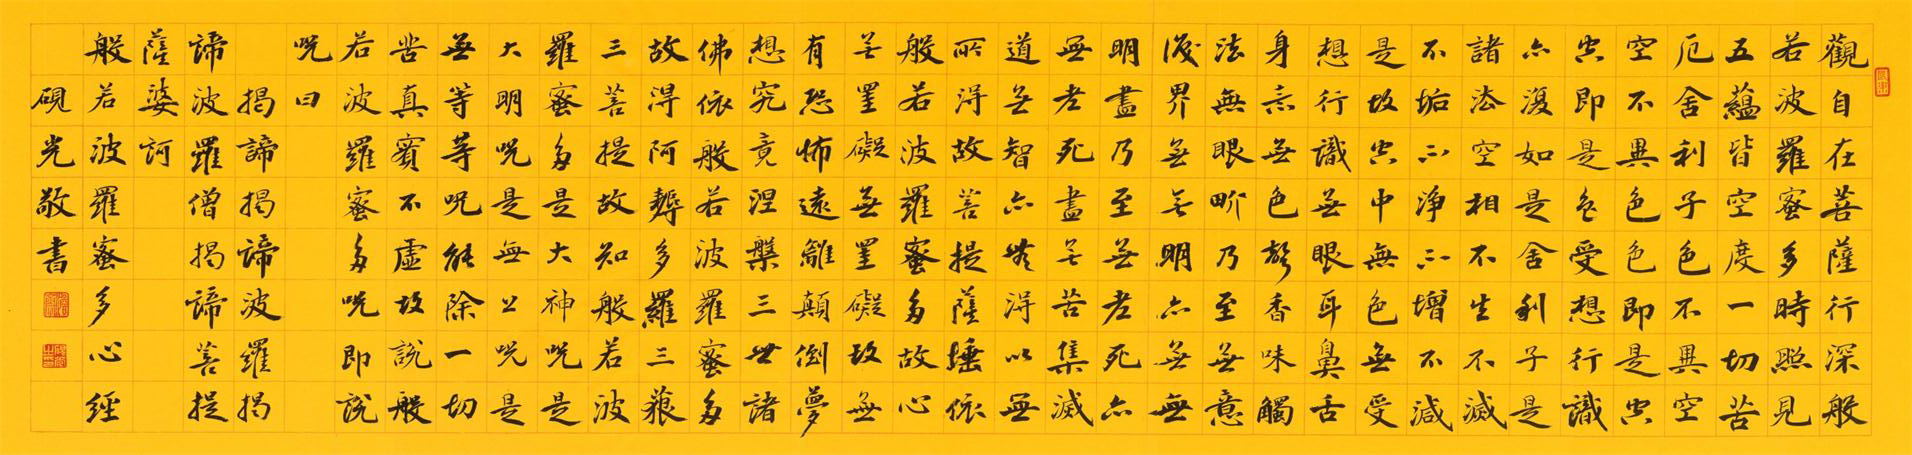 觀自在菩薩行深般
若波羅蜜多時照見
五蘊皆空度一切苦
厄舍利子色不異空
空不異色色即是空
空即是色受想行識
亦復如是舍利子是
諸法空相不生不滅
不垢不淨不增不減
是故空中無色無受
想行識無眼耳鼻舌
身意無色聲香味觸
法無眼界乃至無意
識界無無明亦無無
明盡乃至無老死亦
無老死盡無苦集滅
道無智亦無得以無
所得故菩提薩埵依
般若波羅蜜多故心
無罣礙無罣礙故無
有恐怖遠離顛倒夢
想究竟涅槃三世諸
佛依般若波羅蜜多
故得阿耨多羅三藐
三菩提故知般若波
羅蜜多是大神咒是
大明咒是無上咒是
無等等咒能除一切
苦真實不虛故說般
若波羅蜜多咒即說
咒曰
揭諦揭諦波羅揭
諦波羅僧揭諦菩提
薩婆訶
般若波羅蜜多心經
硯光敬書